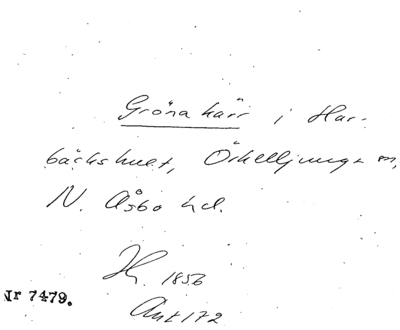 Gröna kärr i Har-
bäckshult, Örkelljunga sn,
N. Åsbo hd.
H. 1856
Ant 172
Nr 7479.